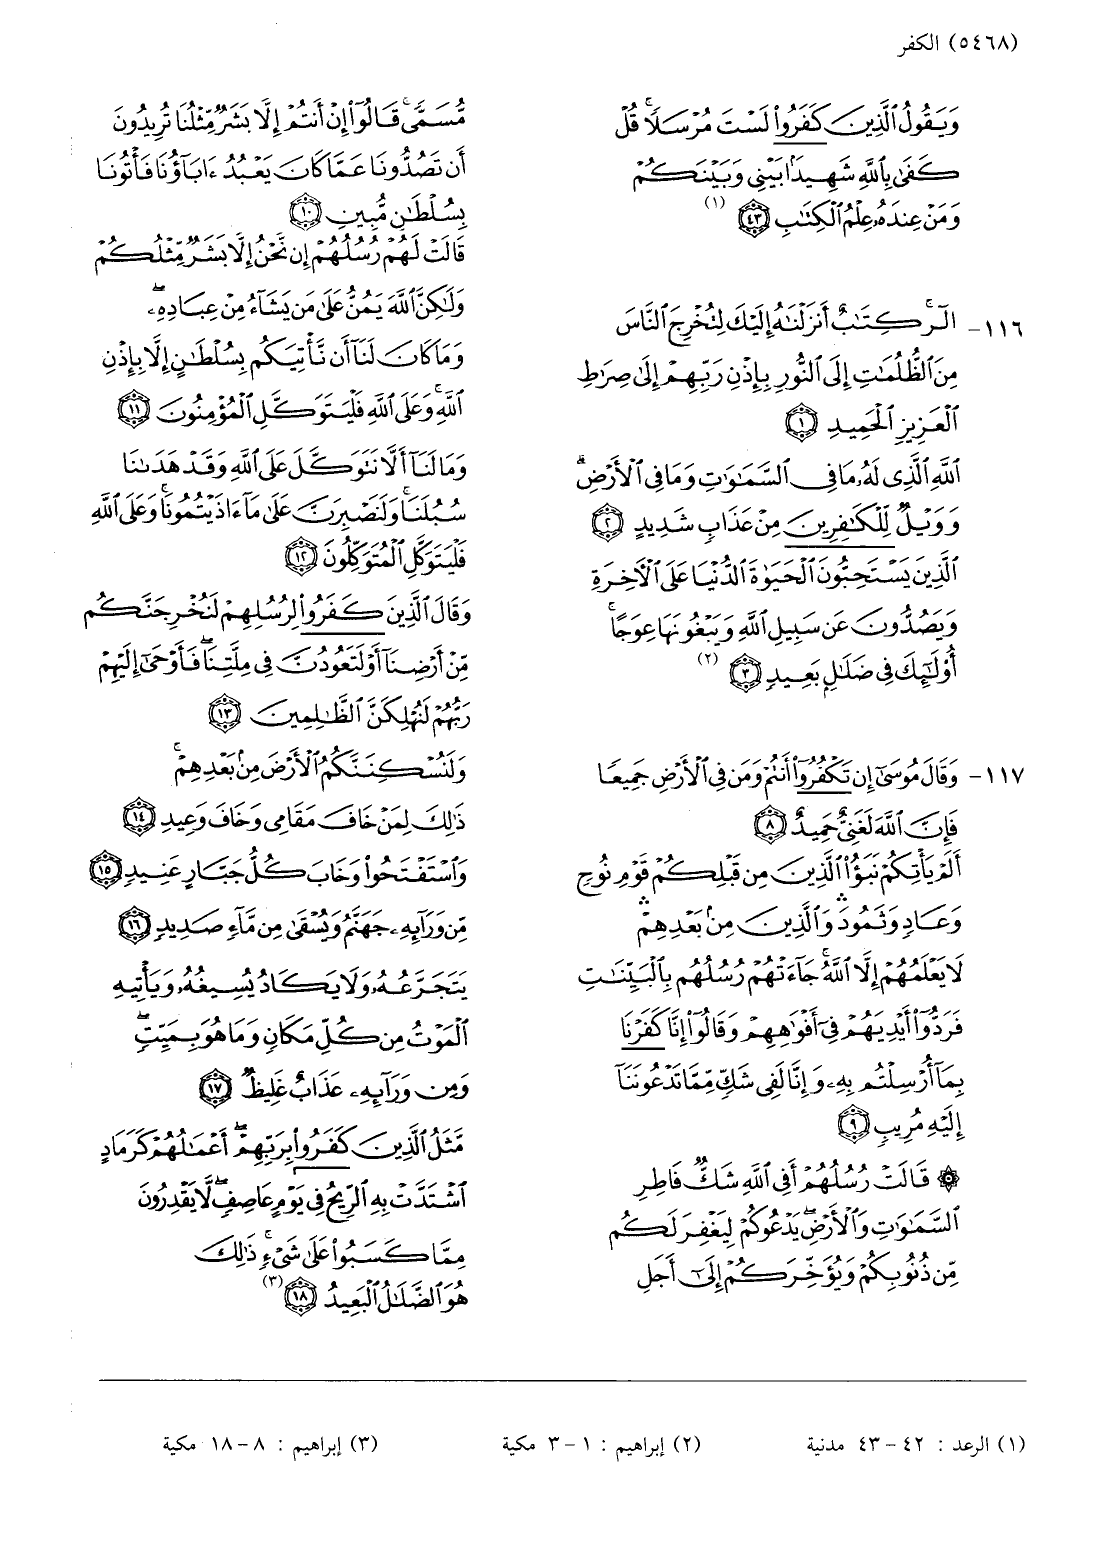 (٥٤٦٨) الكفر
وَيَقُولُ ٱلَّذِينَ كَفَرُوا۟ لَسْتَ مُرْسَلًا ۚ قُلْ
كَفَىٰ بِٱللَّهِ شَهِيدًۢا بَيْنِى وَبَيْنَكُمْ
وَمَنْ عِندَهُۥ عِلْمُ ٱلْكِتَٰبِ ﴿٤٣﴾ (١)
١١٦- الٓر ۚ كِتَٰبٌ أَنزَلْنَٰهُ إِلَيْكَ لِتُخْرِجَ ٱلنَّاسَ
مِنَ ٱلظُّلُمَٰتِ إِلَى ٱلنُّورِ بِإِذْنِ رَبِّهِمْ إِلَىٰ صِرَٰطِ
ٱلْعَزِيزِ ٱلْحَمِيدِ ﴿١﴾
ٱللَّهِ ٱلَّذِى لَهُۥ مَا فِى ٱلسَّمَٰوَٰتِ وَمَا فِى ٱلْأَرْضِ ۗ
وَوَيْلٌ لِّلْكَٰفِرِينَ مِنْ عَذَابٍ شَدِيدٍ ﴿٢﴾
ٱلَّذِينَ يَسْتَحِبُّونَ ٱلْحَيَوٰةَ ٱلدُّنْيَا عَلَى ٱلْءَاخِرَةِ
وَيَصُدُّونَ عَن سَبِيلِ ٱللَّهِ وَيَبْغُونَهَا عِوَجًا ۚ
أُو۟لَٰٓئِكَ فِى ضَلَٰلٍۭ بَعِيدٍ ﴿٣﴾ (٢)
١١٧- وَقَالَ مُوسَىٰٓ إِن تَكْفُرُوٓا۟ أَنتُمْ وَمَن فِى ٱلْأَرْضِ جَمِيعًا
فَإِنَّ ٱللَّهَ لَغَنِىٌّ حَمِيدٌ ﴿٨﴾
أَلَمْ يَأْتِكُمْ نَبَؤُا۟ ٱلَّذِينَ مِن قَبْلِكُمْ قَوْمِ نُوحٍ
وَعَادٍ وَثَمُودَ ۛ وَٱلَّذِينَ مِنۢ بَعْدِهِمْ ۛ
لَا يَعْلَمُهُمْ إِلَّا ٱللَّهُ ۚ جَآءَتْهُمْ رُسُلُهُم بِٱلْبَيِّنَٰتِ
فَرَدُّوٓا۟ أَيْدِيَهُمْ فِىٓ أَفْوَٰهِهِمْ وَقَالُوٓا۟ إِنَّا كَفَرْنَا
بِمَآ أُرْسِلْتُم بِهِۦ وَإِنَّا لَفِى شَكٍّ مِّمَّا تَدْعُونَنَآ
إِلَيْهِ مُرِيبٍ ﴿٩﴾
۞ قَالَتْ رُسُلُهُمْ أَفِى ٱللَّهِ شَكٌّ فَاطِرِ
ٱلسَّمَٰوَٰتِ وَٱلْأَرْضِ ۖ يَدْعُوكُمْ لِيَغْفِرَ لَكُم
مِّن ذُنُوبِكُمْ وَيُؤَخِّرَكُمْ إِلَىٰٓ أَجَلٍ
مُّسَمًّى ۚ قَالُوٓا۟ إِنْ أَنتُمْ إِلَّا بَشَرٌ مِّثْلُنَا تُرِيدُونَ
أَن تَصُدُّونَا عَمَّا كَانَ يَعْبُدُ ءَابَآؤُنَا فَأْتُونَا
بِسُلْطَٰنٍ مُّبِينٍ ﴿١٠﴾
قَالَتْ لَهُمْ رُسُلُهُمْ إِن نَّحْنُ إِلَّا بَشَرٌ مِّثْلُكُمْ
وَلَٰكِنَّ ٱللَّهَ يَمُنُّ عَلَىٰ مَن يَشَآءُ مِنْ عِبَادِهِۦ ۖ
وَمَا كَانَ لَنَآ أَن نَّأْتِيَكُم بِسُلْطَٰنٍ إِلَّا بِإِذْنِ
ٱللَّهِ ۚ وَعَلَى ٱللَّهِ فَلْيَتَوَكَّلِ ٱلْمُؤْمِنُونَ ﴿١١﴾
وَمَا لَنَآ أَلَّا نَتَوَكَّلَ عَلَى ٱللَّهِ وَقَدْ هَدَىٰنَا
سُبُلَنَا ۚ وَلَنَصْبِرَنَّ عَلَىٰ مَآ ءَاذَيْتُمُونَا ۚ وَعَلَى ٱللَّهِ
فَلْيَتَوَكَّلِ ٱلْمُتَوَكِّلُونَ ﴿١٢﴾
وَقَالَ ٱلَّذِينَ كَفَرُوا۟ لِرُسُلِهِمْ لَنُخْرِجَنَّكُم
مِّنْ أَرْضِنَآ أَوْ لَتَعُودُنَّ فِى مِلَّتِنَا ۖ فَأَوْحَىٰٓ إِلَيْهِمْ
رَبُّهُمْ لَنُهْلِكَنَّ ٱلظَّٰلِمِينَ ﴿١٣﴾
وَلَنُسْكِنَنَّكُمُ ٱلْأَرْضَ مِنۢ بَعْدِهِمْ ۚ
ذَٰلِكَ لِمَنْ خَافَ مَقَامِى وَخَافَ وَعِيدِ ﴿١٤﴾
وَٱسْتَفْتَحُوا۟ وَخَابَ كُلُّ جَبَّارٍ عَنِيدٍ ﴿١٥﴾
مِّن وَرَآئِهِۦ جَهَنَّمُ وَيُسْقَىٰ مِن مَّآءٍ صَدِيدٍ ﴿١٦﴾
يَتَجَرَّعُهُۥ وَلَا يَكَادُ يُسِيغُهُۥ وَيَأْتِيهِ
ٱلْمَوْتُ مِن كُلِّ مَكَانٍ وَمَا هُوَ بِمَيِّتٍ ۖ
وَمِن وَرَآئِهِۦ عَذَابٌ غَلِيظٌ ﴿١٧﴾
مَّثَلُ ٱلَّذِينَ كَفَرُوا۟ بِرَبِّهِمْ ۖ أَعْمَٰلُهُمْ كَرَمَادٍ
ٱشْتَدَّتْ بِهِ ٱلرِّيحُ فِى يَوْمٍ عَاصِفٍ ۖ لَّا يَقْدِرُونَ
مِمَّا كَسَبُوا۟ عَلَىٰ شَىْءٍ ۚ ذَٰلِكَ
هُوَ ٱلضَّلَٰلُ ٱلْبَعِيدُ ﴿١٨﴾ (٣)
(١) الرعد : ٤٢ – ٤٣ مدنية (٢) إبراهيم : ١ – ٣ مكية (٣) إبراهيم : ٨ – ١٨ مكية